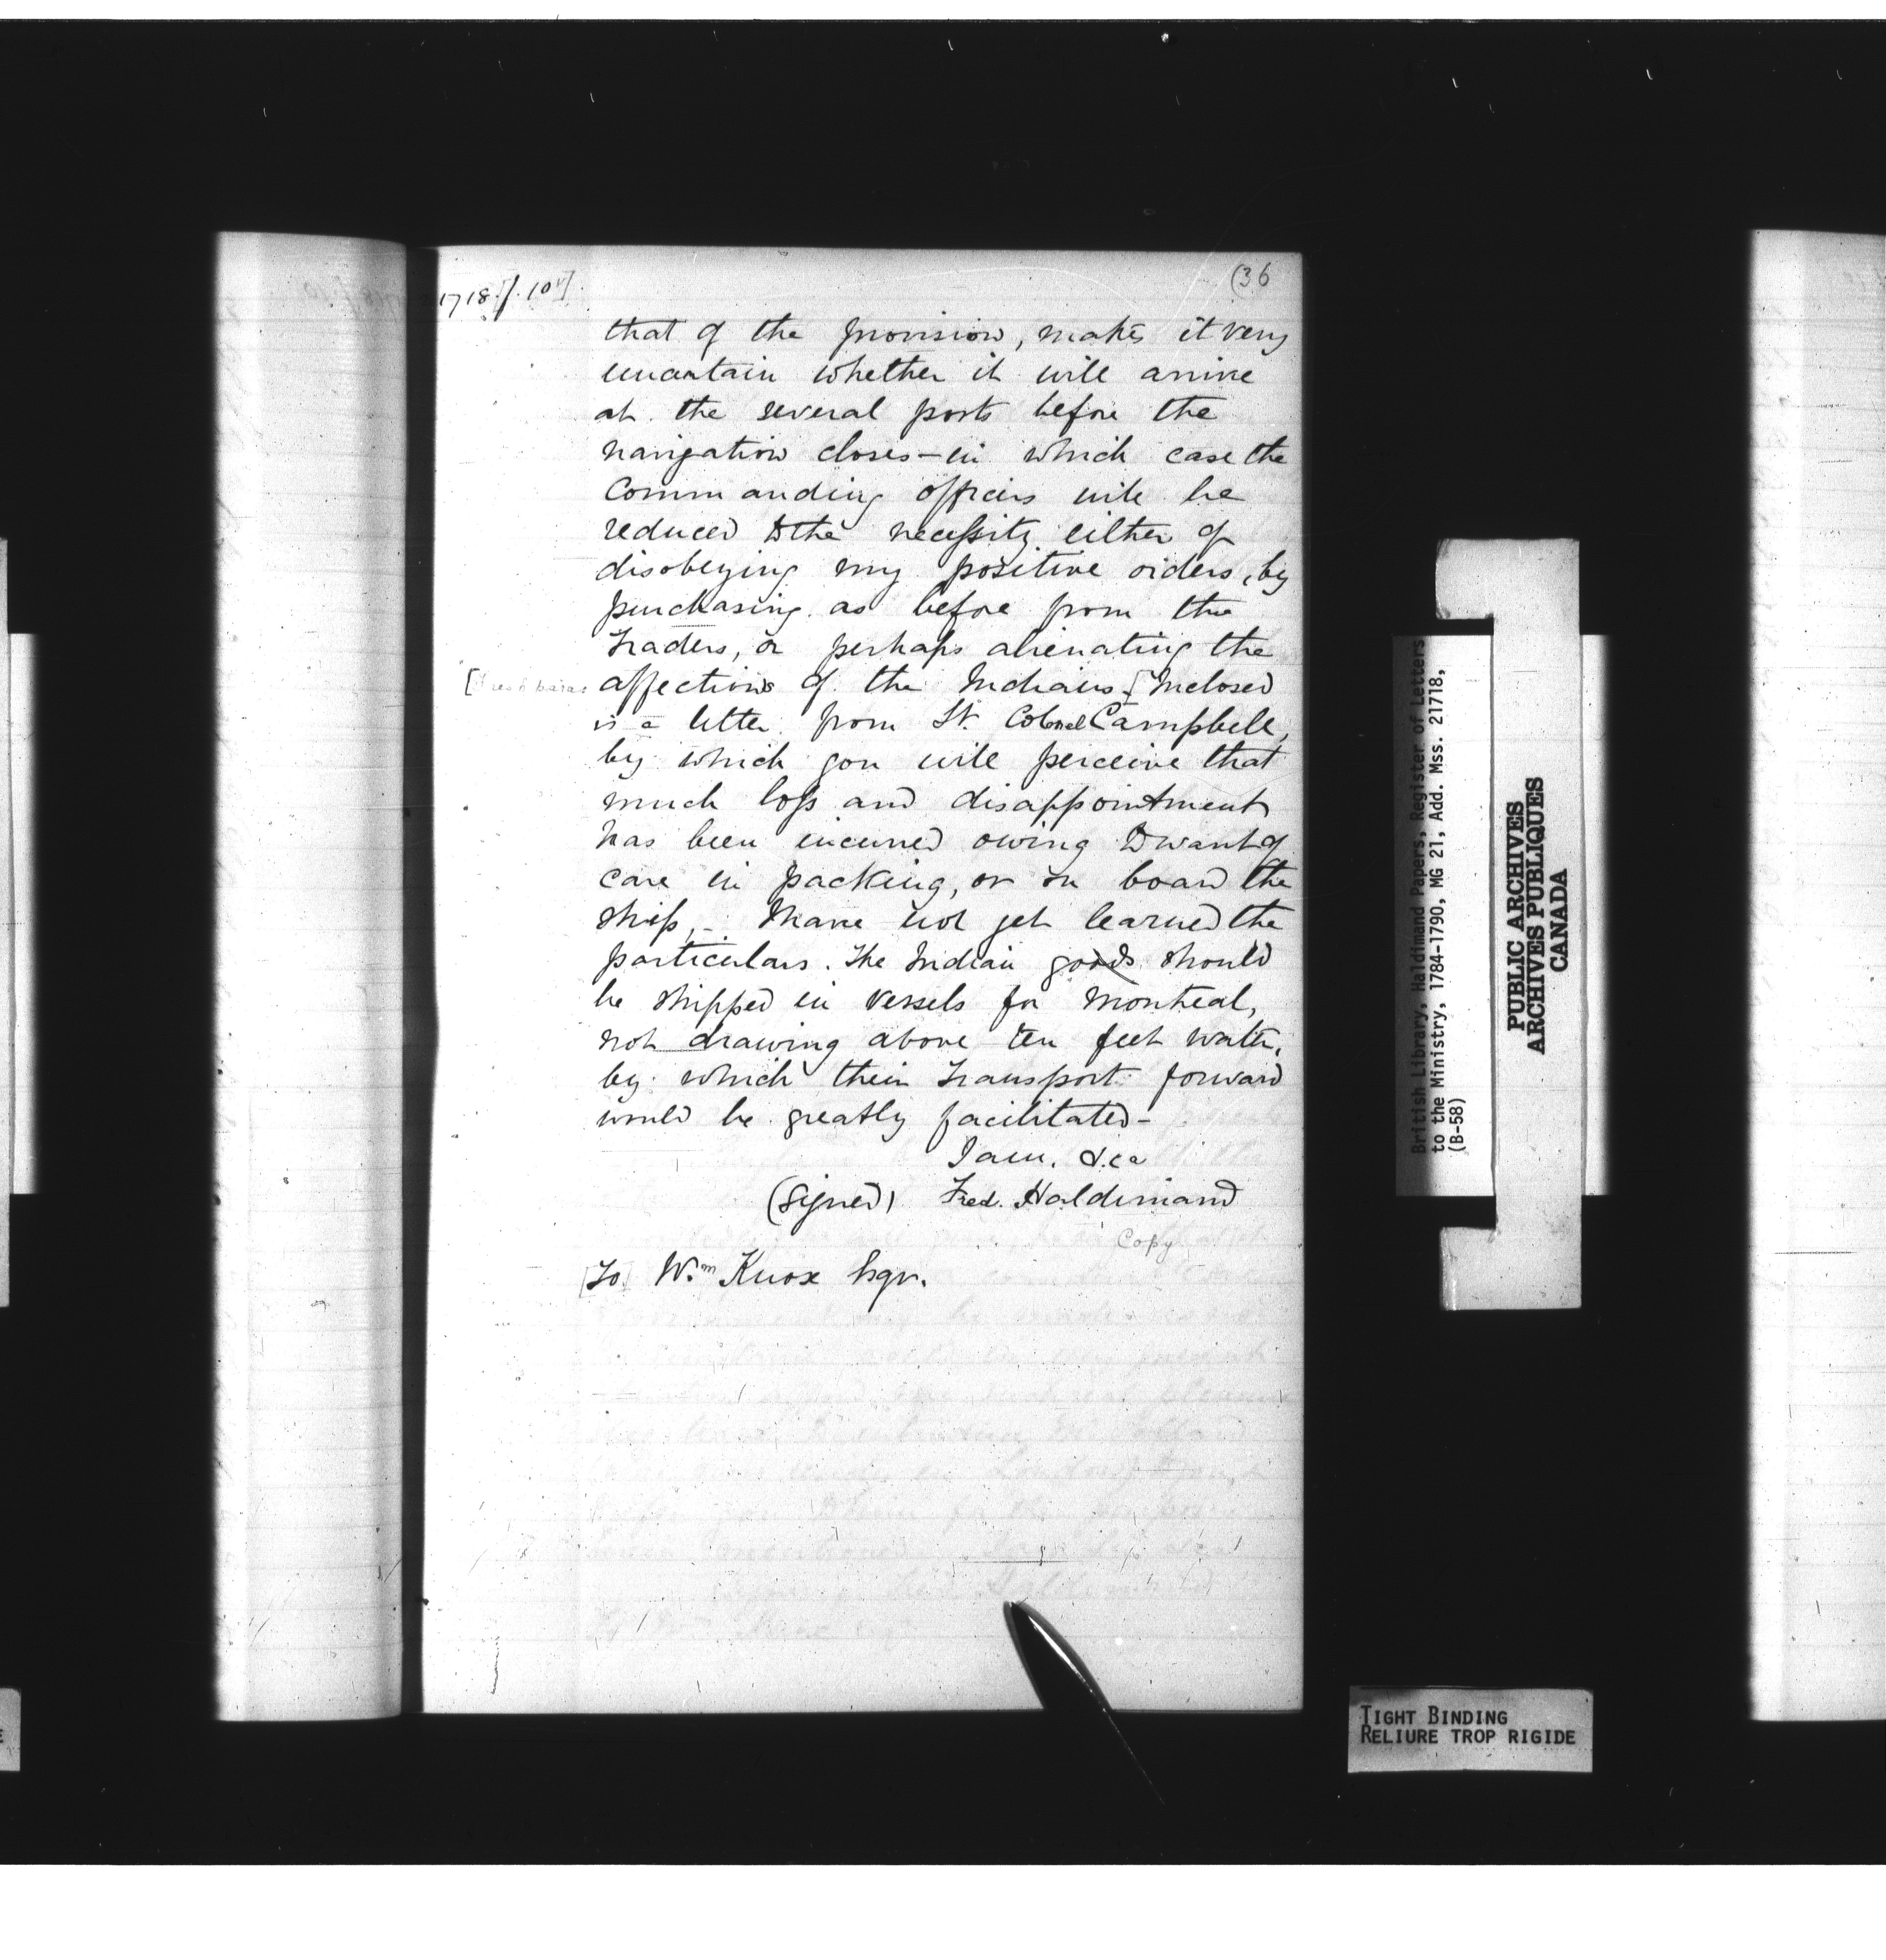 21718. [f. 10v].
(36
that of the provision, makes it very
uncertain whether it will arrive
at the several posts before the
navigation closes - in which case the
Commanding officers will be
reduced to the necessity either of
disobeying my positive orders, by
purchasing as before from the
Traders, or perhaps alienating the
[fresh para: affections of the Indians. [Inclosed
is a letter from Lt. Colonel Campbell,
by which you will perceive that
much loss and disappointment
has been incurred owing to want of
care in packing, or on board the
ship, - I have not yet learned the
particulars. The Indian goods should
be shipped in vessels for Montreal,
not drawing above ten feet water,
by which their Transport forward
would be greatly facilitated -
I am, &ca
(signed) Fred. Haldimand
Copy
[To] Wm Knox Esqr.
British Library, Haldimand Papers, Register of Letters
to the Ministry, 1784-1790, MG 21, Add. Mss. 21718,
(B-58)
PUBLIC ARCHIVES
ARCHIVES PUBLIQUES
CANADA
TIGHT BINDING
RELIURE TROP RIGIDE